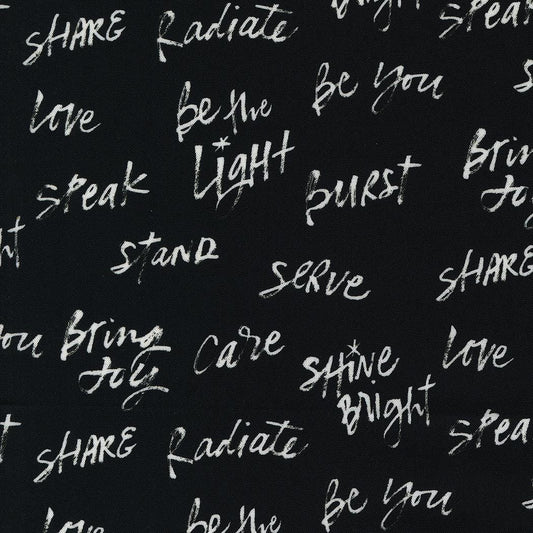 SHARE Radiate
Bright
Speak
Be You
Love
Be the
Light
S
Speak
BURST
Bring
Joy
ht
STAND
SERVE
SHARE
You
Bring
Joy
Care
SHiNE
Bright
Love
SHARE
Radiate
Spea
Be You
Love
Be the